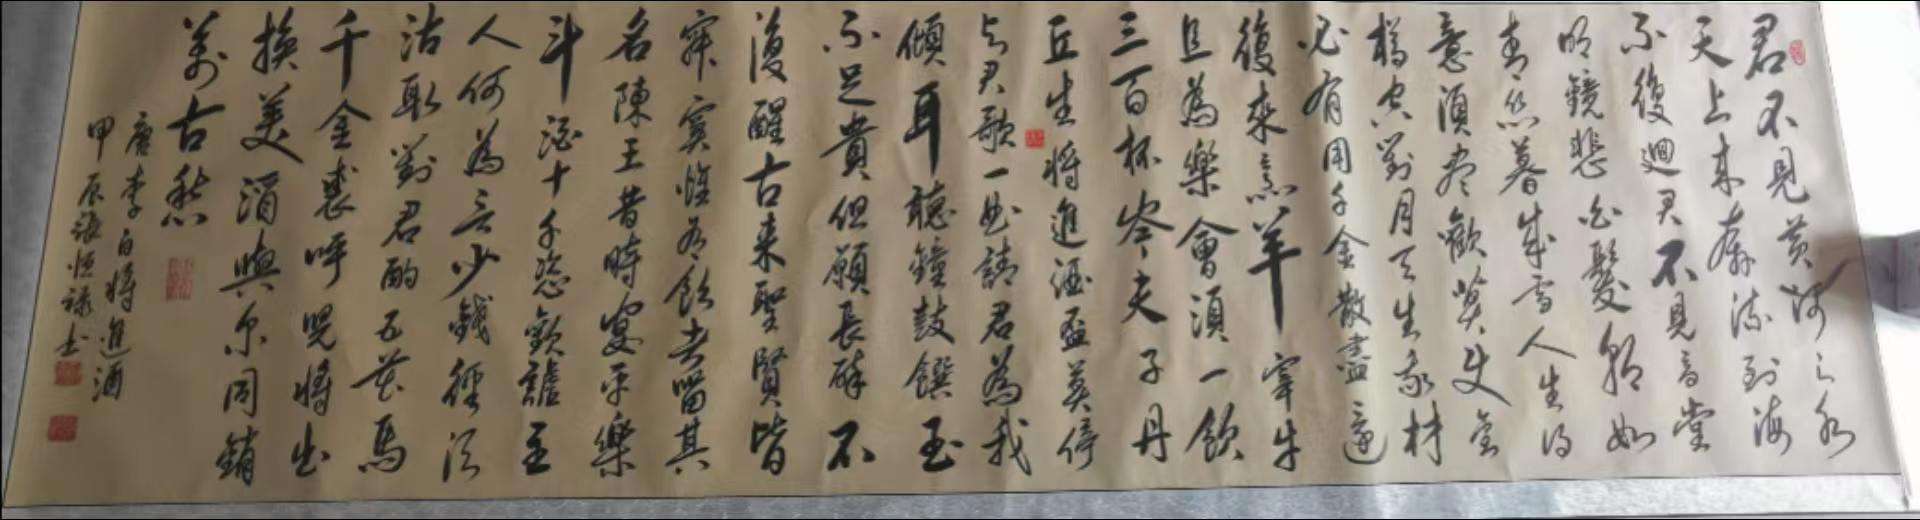 君不見黃河之水
天上来奔流到海
不復迴君不見高堂
明鏡悲白髮朝如
青丝暮成雪人生得
意須尽歡莫使金
樽空對月天生我材
必有用千金散盡還
復來烹羊宰牛
且為樂會須一飲
三百杯岑夫子丹
丘生將進酒盃莫停
与君歌一曲請君為我
傾耳聽鐘鼓饌玉
不足貴但願長醉不
復醒古来聖賢皆
寂寞惟有飲者留其
名陳王昔時宴平樂
斗酒十千恣歡謔主
人何為言少錢徑須
沽取對君酌五花馬
千金裘呼児將出
換美酒與尔同銷
萬古愁
唐李白將進酒
甲辰張恒禄书